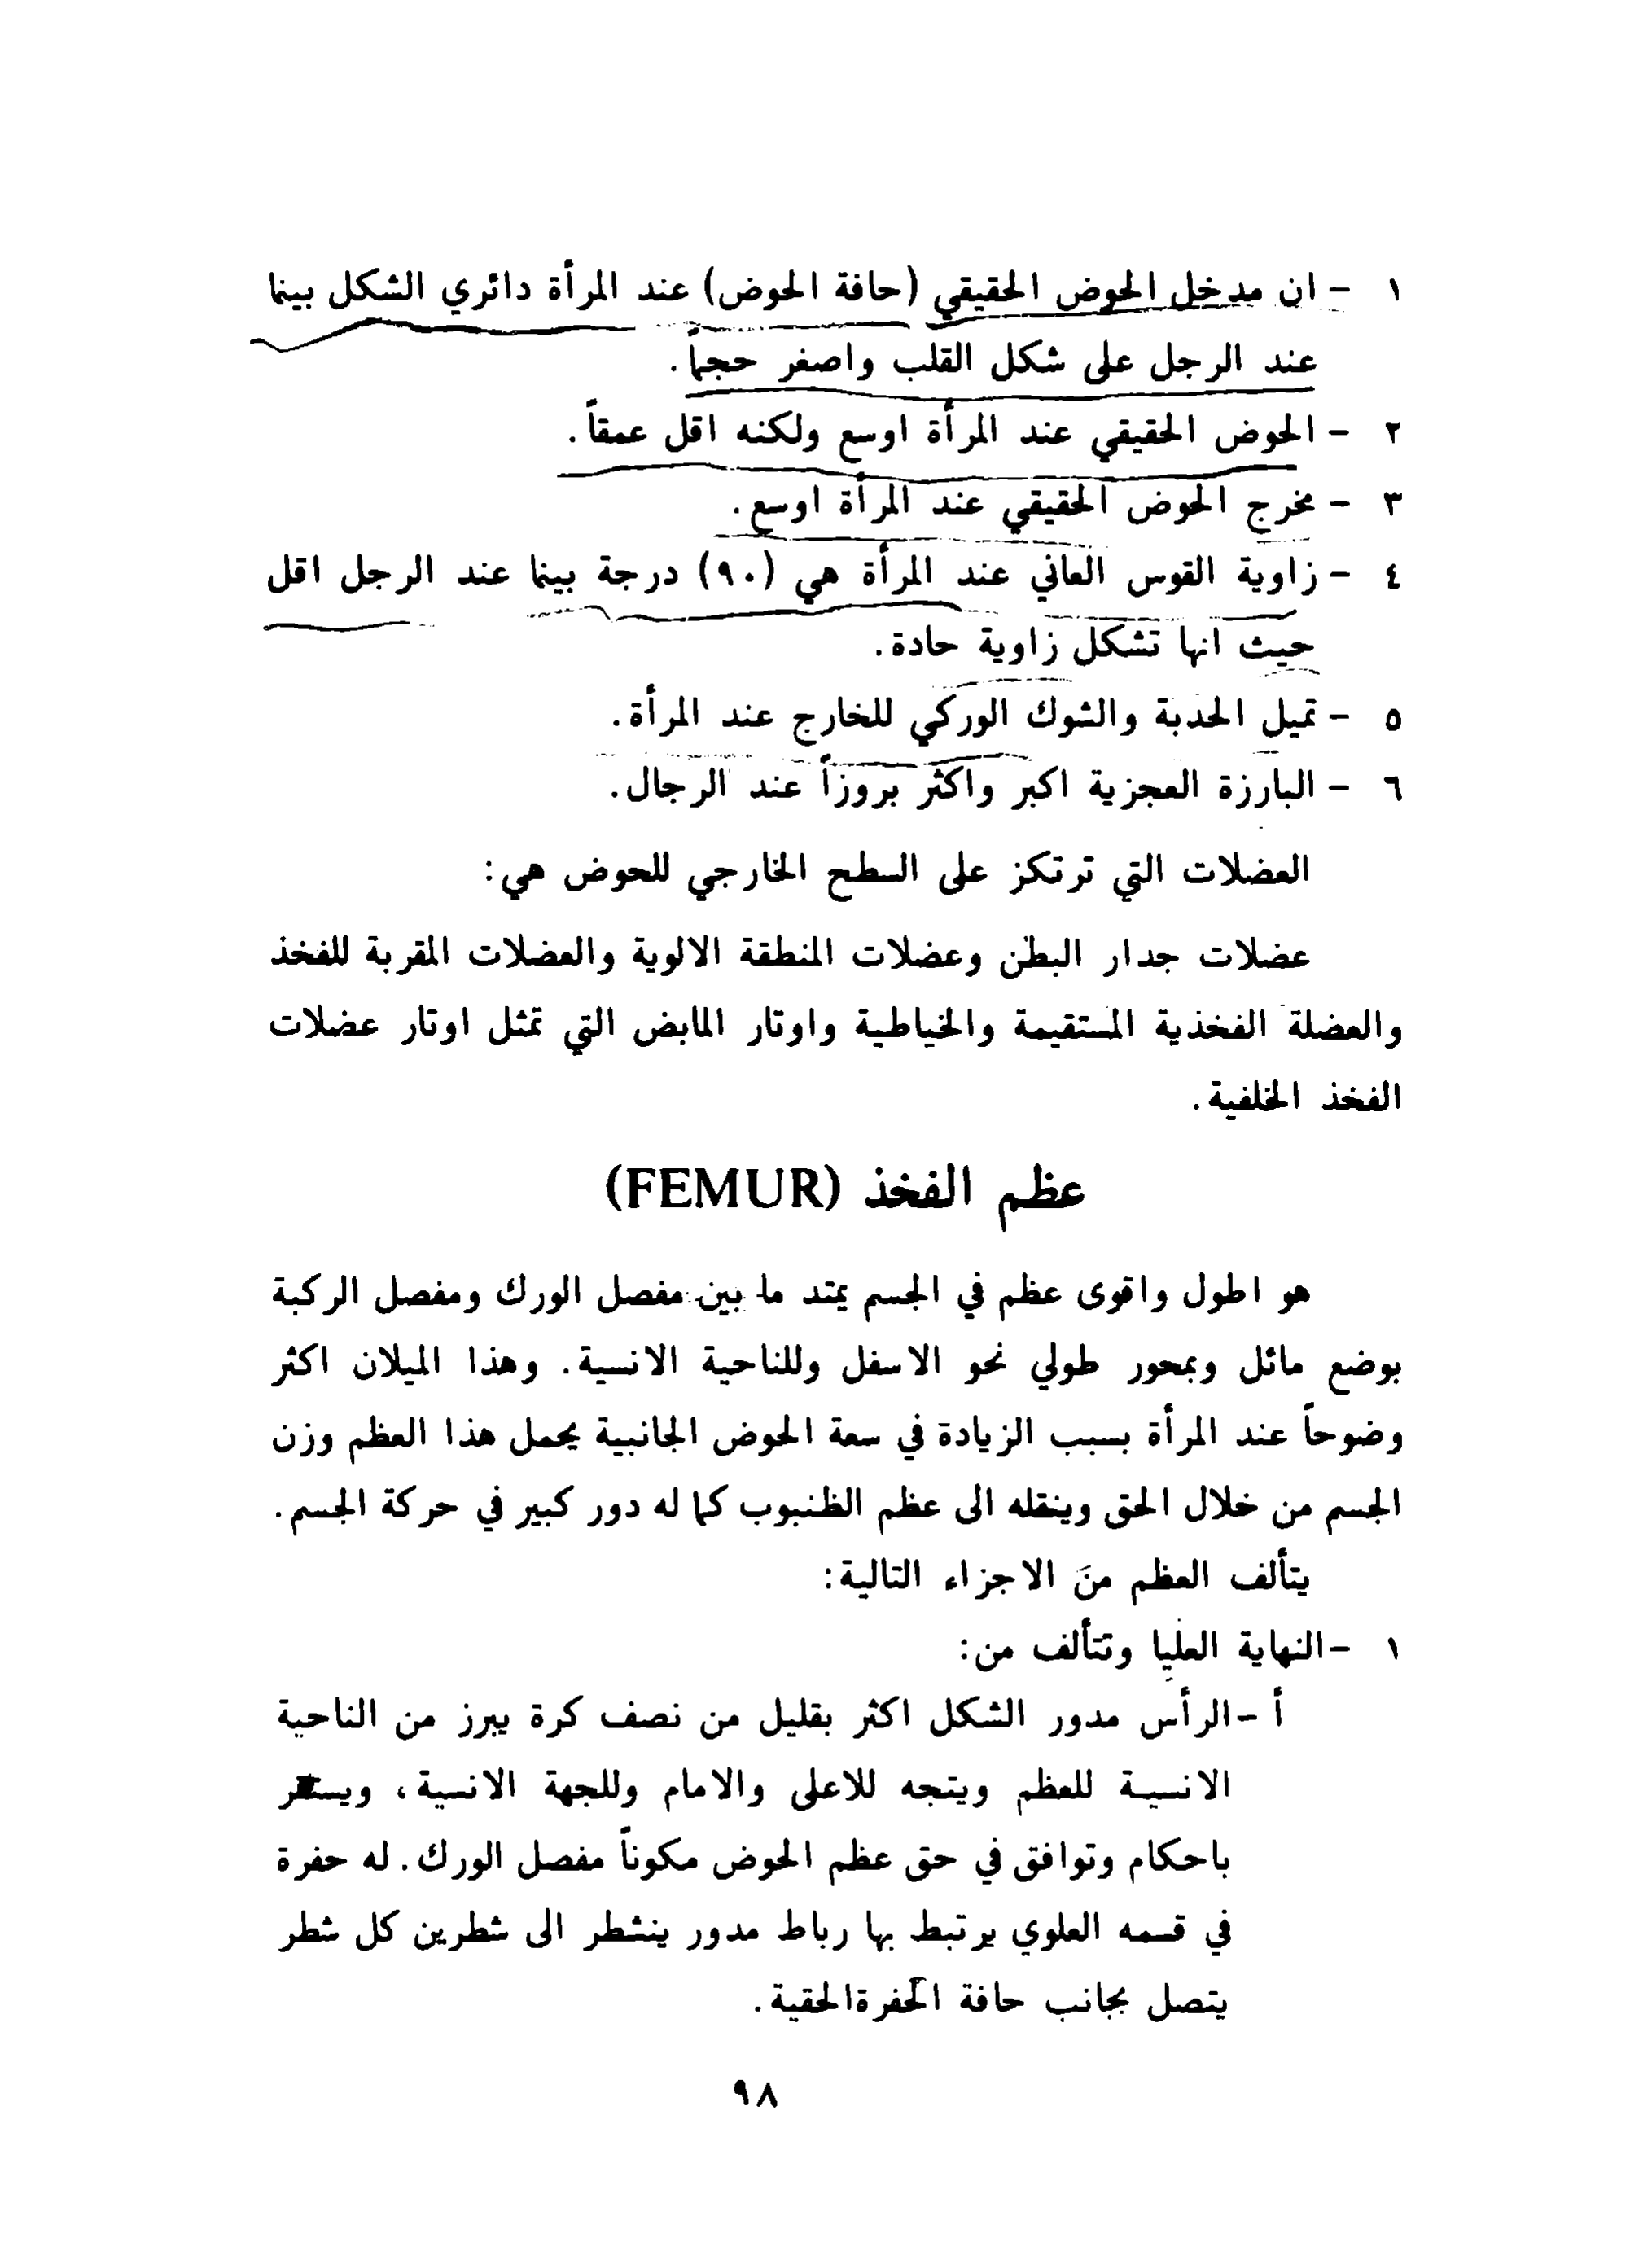 ١ - ان مدخل الحوض الحقيقي (حافة الحوض) عند المرأة دائري الشكل بينما
عند الرجل على شكل القلب واصغر حجماً.
٢ - الحوض الحقيقي عند المرأة اوسع ولكنه اقل عمقاً.
٣ - مخرج الحوض الحقيقي عند المرأة اوسع.
٤ - زاوية القوس العاني عند المرأة هي (٩٠) درجة بينما عند الرجل اقل
حيث انها تشكل زاوية حادة.
٥ - تميل الحدبة والشوك الوركي للخارج عند المرأة.
٦ - البارزة العجزية اكبر واكثر بروزاً عند الرجال.
العضلات التي ترتكز على السطح الخارجي للحوض هي:
عضلات جدار البطن وعضلات المنطقة الالوية والعضلات المقربة للفخذ
والعضلة الفخذية المستقيمة والخياطية واوتار المابض التي تمثل اوتار عضلات
الفخذ الخلفية.
عظم الفخذ (FEMUR)
هو اطول واقوى عظم في الجسم يمتد ما بين مفصل الورك ومفصل الركبة
بوضع مائل وبمحور طولي نحو الاسفل وللناحية الانسية. وهذا الميلان اكثر
وضوحاً عند المرأة بسبب الزيادة في سعة الحوض الجانبية يحمل هذا العظم وزن
الجسم من خلال الحق وينقله الى عظم الظنبوب كما له دور كبير في حركة الجسم.
يتألف العظم منَ الاجزاء التالية:
١ -النهاية العليا وتتألف من:
أ -الرأس مدور الشكل اكثر بقليل من نصف كرة يبرز من الناحية
الانسية للعظم ويتجه للاعلى والامام وللجهة الانسية، ويستقر
باحكام وتوافق في حق عظم الحوض مكوناً مفصل الورك. له حفرة
في قسمه العلوي يرتبط بها رباط مدور ينشطر الى شطرين كل شطر
يتصل بجانب حافة الحفرةالحقية.
٩٨